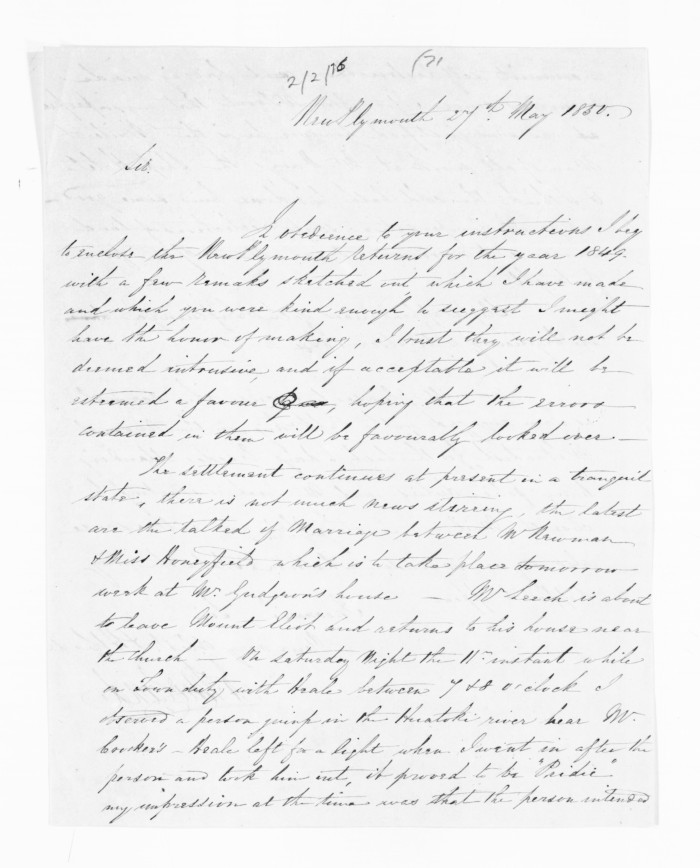 2/2/75
(71
New Plymouth 27th May 1850.
Sir.
In obedience to your instructions I beg
to enclose the New Plymouth returns for the year 1849.
with a few remaks sketched out which I have made
and which you were kind enough to suggest I might
have the honor of making, I trust they will not be
deemed intrusive, and if acceptable it will be
esteemed a favour, hoping that the errors
contained in them will be favourably looked over —
The settlement continues at present in a tranquil
state, there is not much news stirring, the latest
are the talked of Marriage between Mr Newman
& Miss Honeyfield which is to take place tomorrow
week at Mr. Gudgeon's house — Mr Leech is about
to leave Mount Eliot and returns to his house near
the Church — On Saturday Night the 11th instant while
on Town duty with Heale between 7 & 8 o'clock I
obsewed a person jump in the Huatoki river near Mr.
— Heale left for a light when I went in after the
person and took him out, it proved to be "Pridie"
my impression at the time was that the person intended